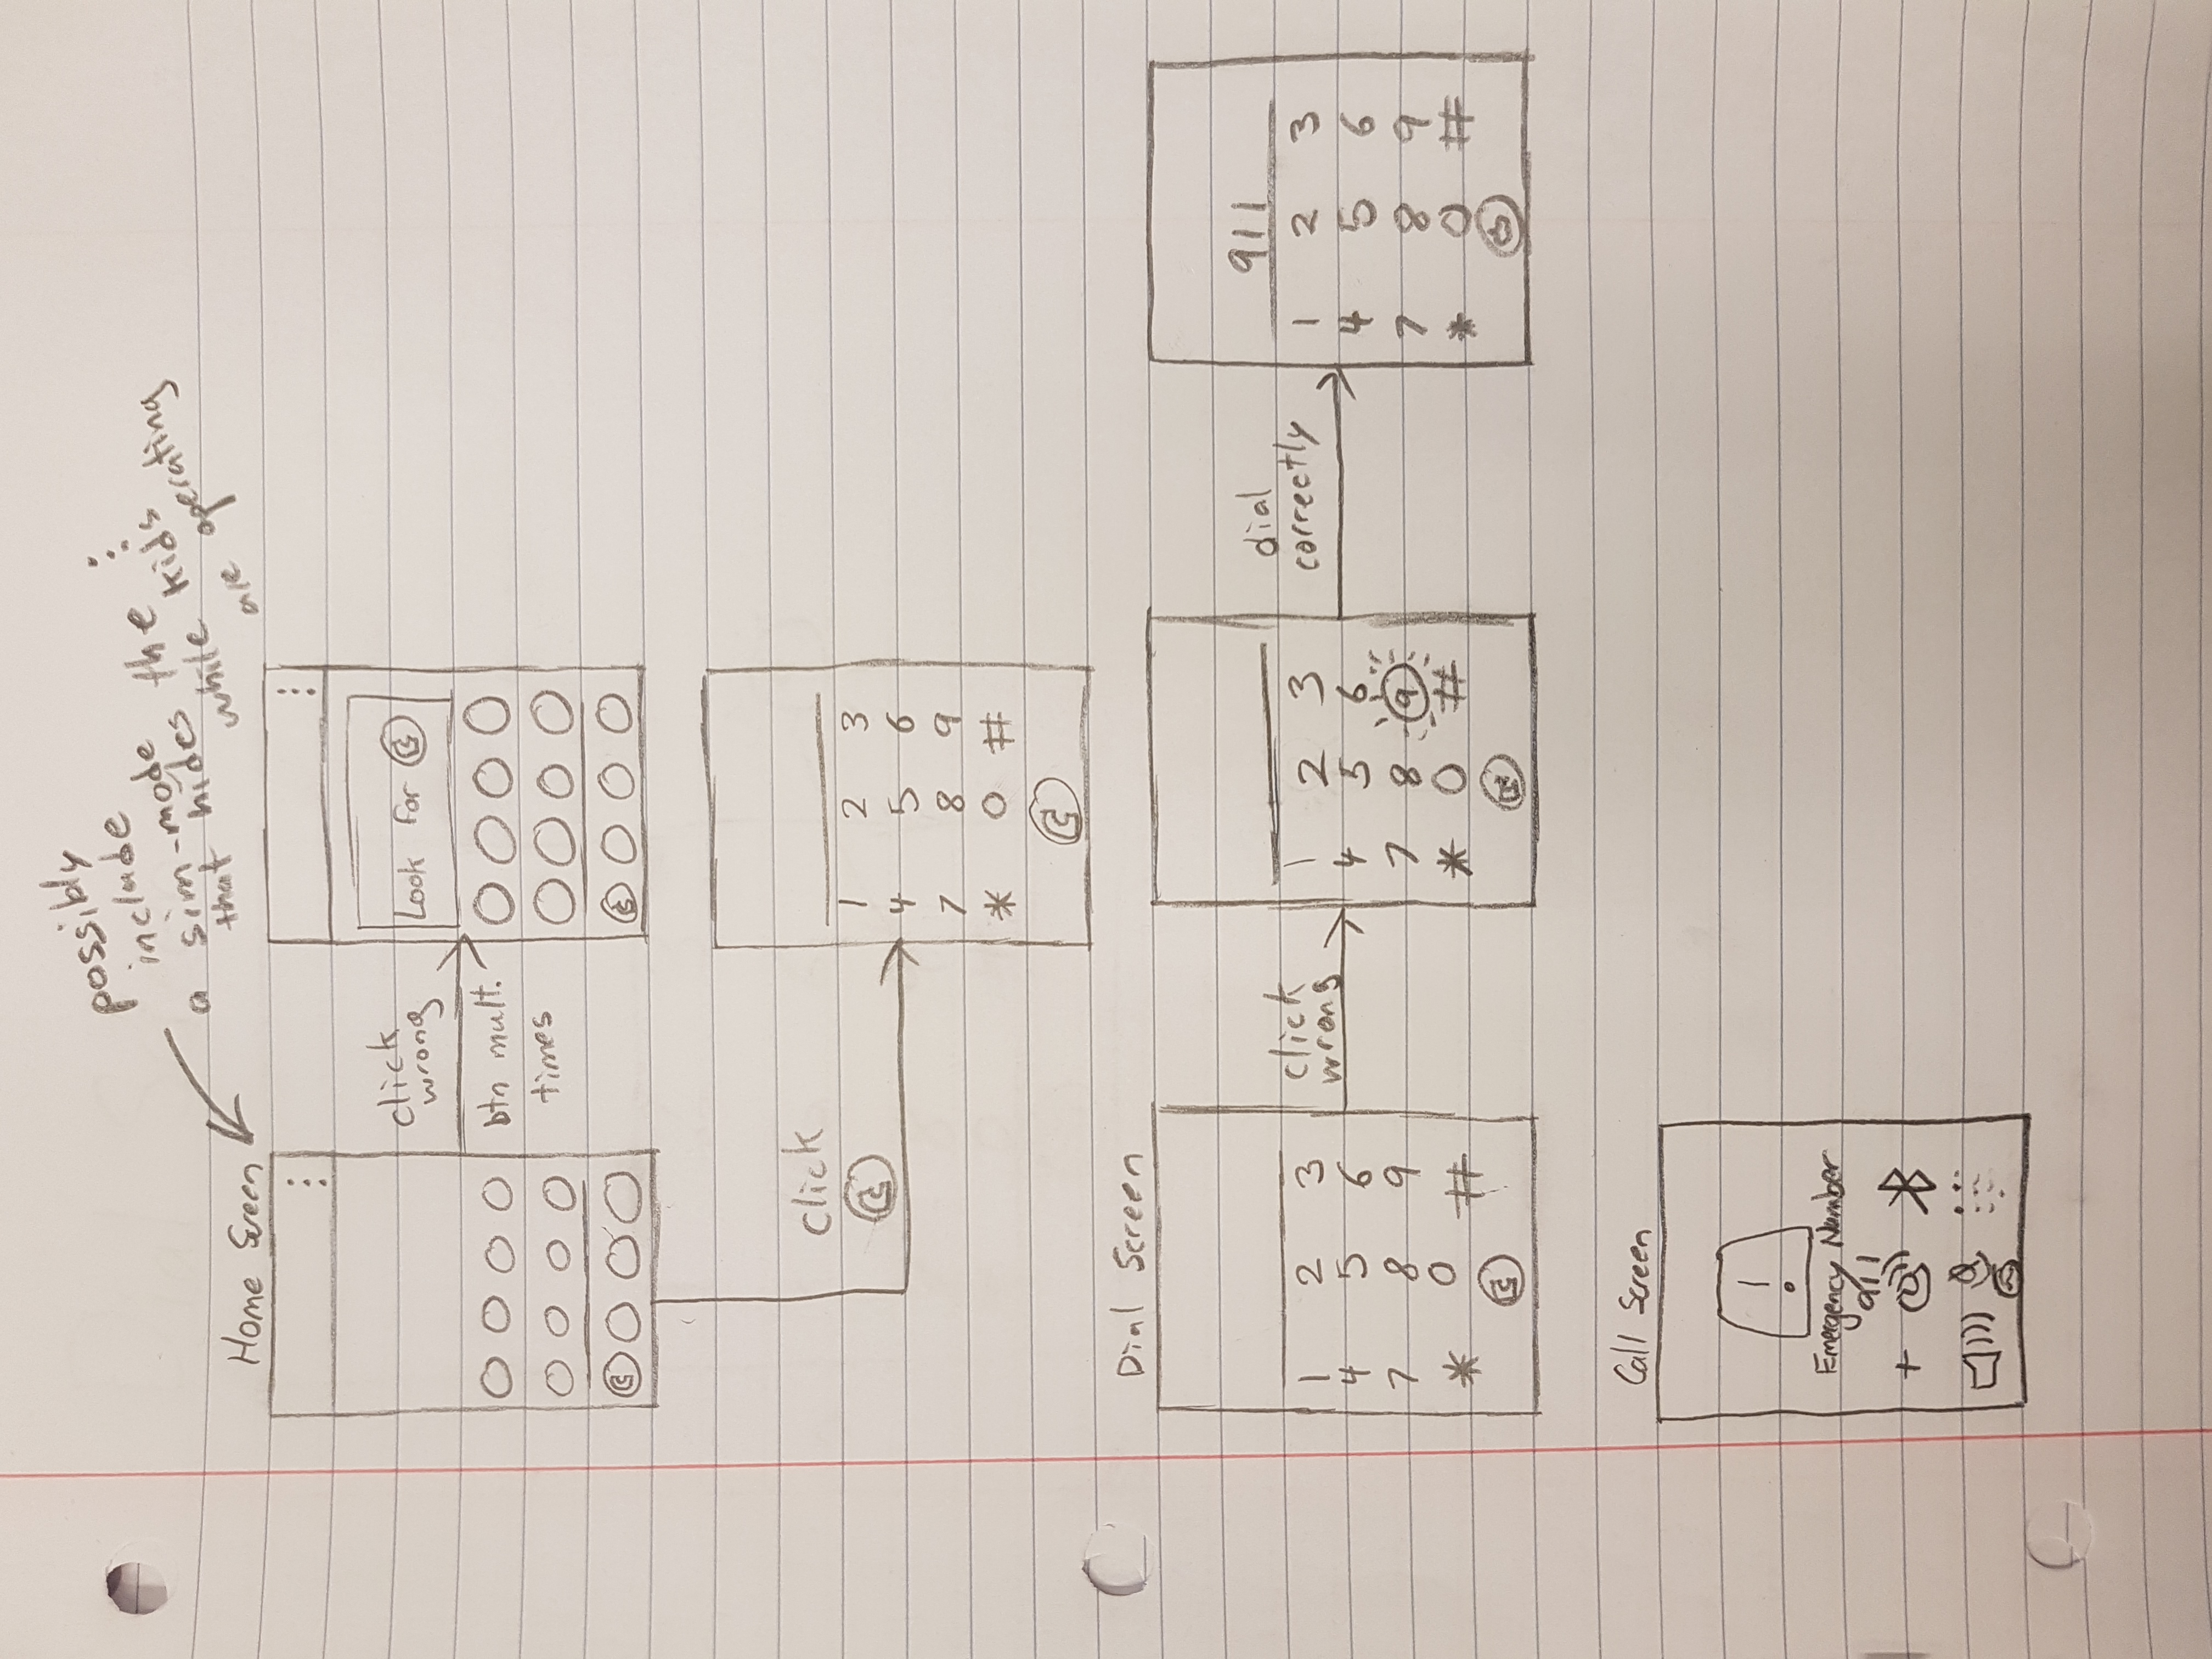 possibly
include
a sim-mode
that hides the ⋮
while kids
are operating
Home Screen
click
wrong
btn mult.
times
Look for
click
1 2 3
4 5 6
7 8 9
* 0 #
Dial Screen
1 2 3
4 5 6
7 8 9
* 0 #
click
wrong
1 2 3
4 5 6
7 8 9
* 0 #
dial
correctly
911
1 2 3
4 5 6
7 8 9
* 0 #
Call Screen
!
Emergency Number
911
+